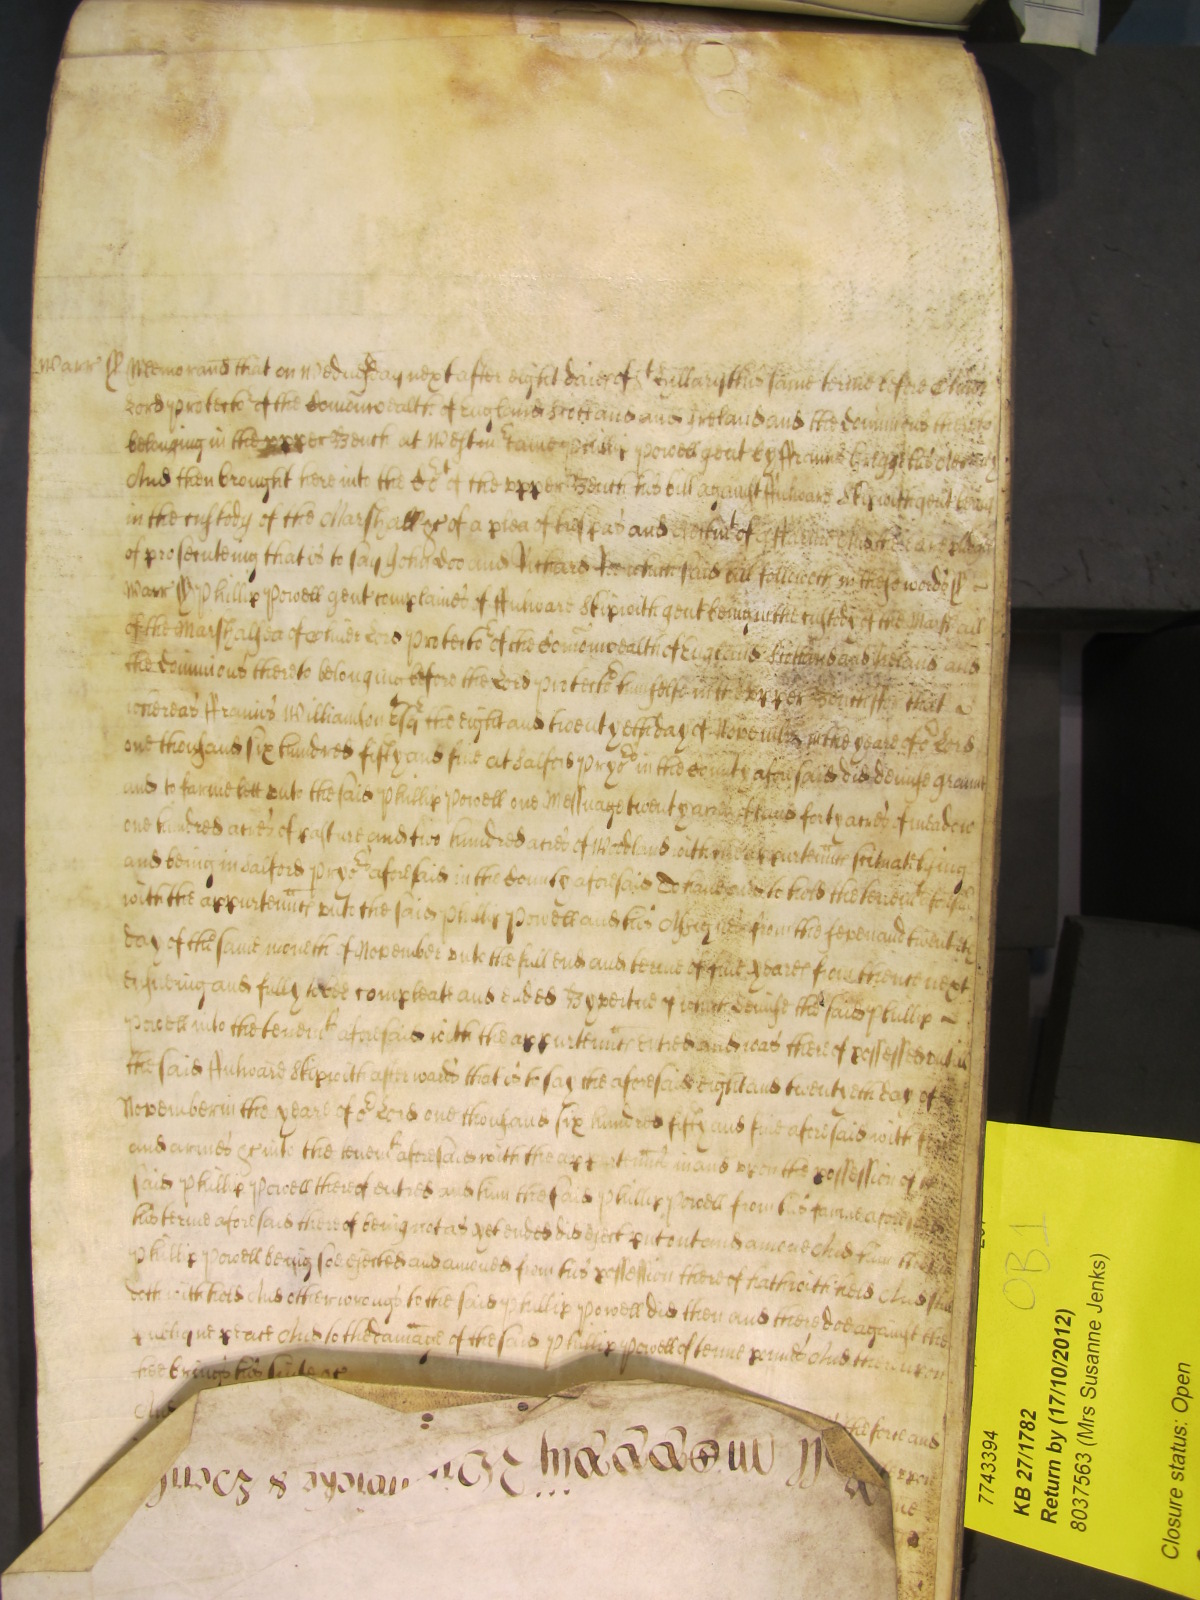 Warr ss Memorand that on Wednesday next after eight daies of St Hillary this same terme before Oliver
Lord Protector of the Comonwealth of England Scotland and Ireland and the dominions thereto
belonging in the upper Bench at Westm came Phillip Powell gent by Francis his Atorney
And then brought here into the Cort of the upper Bench his bill against Fulware Skipwith gent being
in the custody of the Marshall &c of a plea of trespas and eiectmt of Farme And there are pledges
of prosecuteing that is to say John Doo and Richard Roo which said bill followeth in these words ss
Warr ss Phillip Powell gent complaines of Fulware Skipwith gent being in the custody of the Marshall
of the Marshalsea of Lord Protector of the Comonwealth of England Scotland and Ireland and
the dominions thereto belonging before the Lord Protector himselfe in the upper Bench for that
whereas Francis Williamson Esqr the eight and twentyeth day of November in the yeare of or Lord
one thousand six hundred fifty and five at Salford Pryor in the County aforesaid did demise graunt
and to farme lett unto the said Phillip Powell one Messuage twenty acres of land forty acres of meadow
one hundred acres of pasture and two hundred acres of Woodland with the appurtenncs scituate lying
and being in Salford Pryor aforesaid in the County aforesaid To have and to hold the tenemts aforesaid
with the appurtenncs unto the said Phillip Powell and his Assignes from the seven and twentieth
day of the same moneth of November unto the full end and terme of five yeares from thence next
ensueing and fully to bee compleate and ended By vertue of which demise the said Phillip
Powell into the tenemts aforesaid with the appurtenncs entred and was thereof possessed untill
the said Fulware Skipwith afterwards that is to say the aforesaid eight and twentyeth day of
November in the yeare of or Lord one thousand six hundred fifty and five aforesaid with force
and armes &c into the tenemts aforesaid with the appurtenncs in and upon the possession of the
said Phillip Powell thereof entred and him the said Phillip Powell from his farme aforesaid
his terme aforesaid thereof being not as yet ended did eject put out and amove And him the said
Phillip Powell being soe ejected and amoved from his possession thereof hath withheld And still
doth withhold And other wrongs to the said Phillip Powell did then and there doe against the
publique peace And to the damage of the said Phillip Powell of tenne pounds And thereupon
hee brings his suite &c
And
7743394
KB 27/1782
Return by (17/10/2012)
8037563 (Mrs Susanne Jenks)
Closure status: Open
OB1